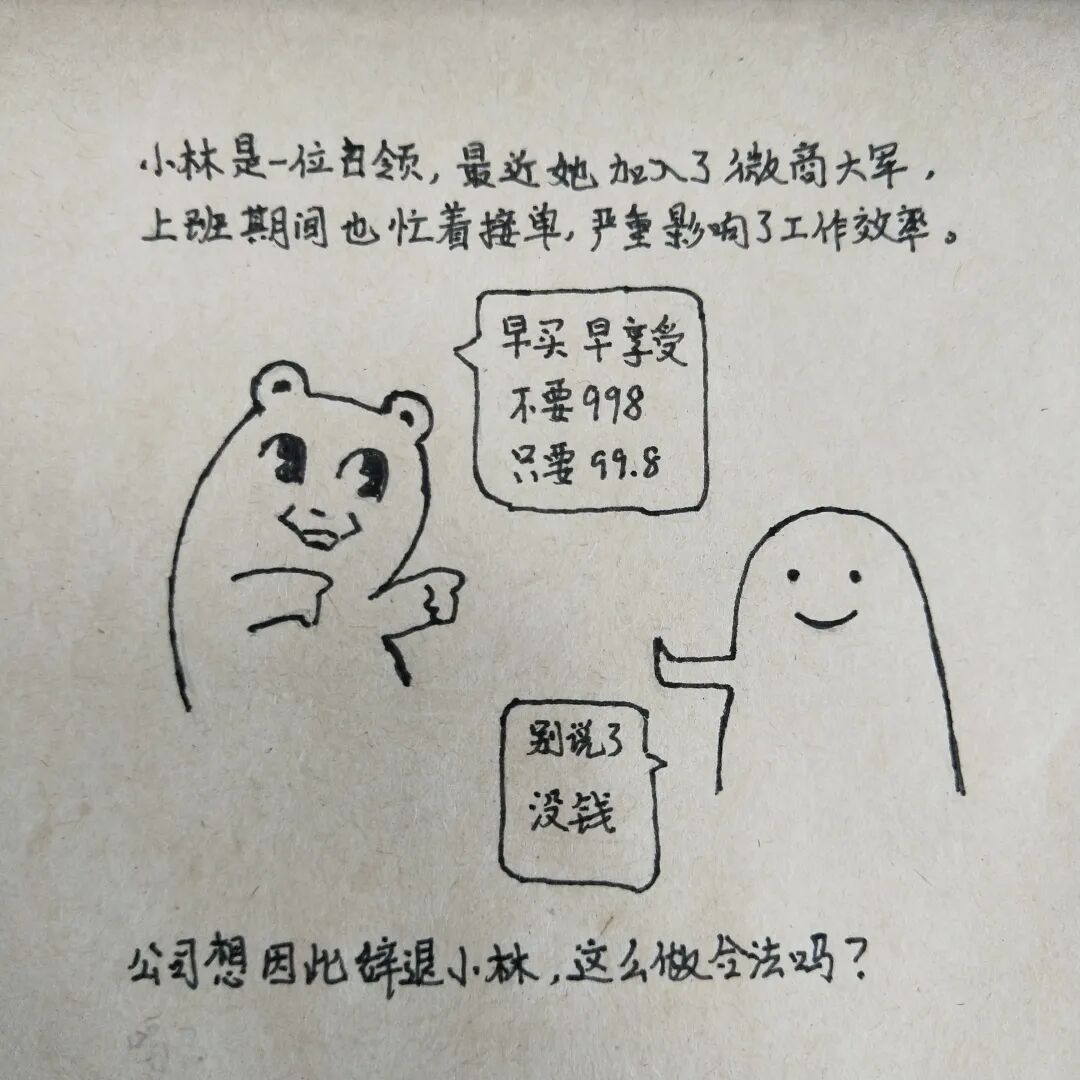 小林是一位白领，最近她加入了微商大军，
上班期间也忙着接单，严重影响了工作效率。
早买早享受
不要998
只要99.8
别说了
没钱
公司想因此辞退小林，这么做合法吗？